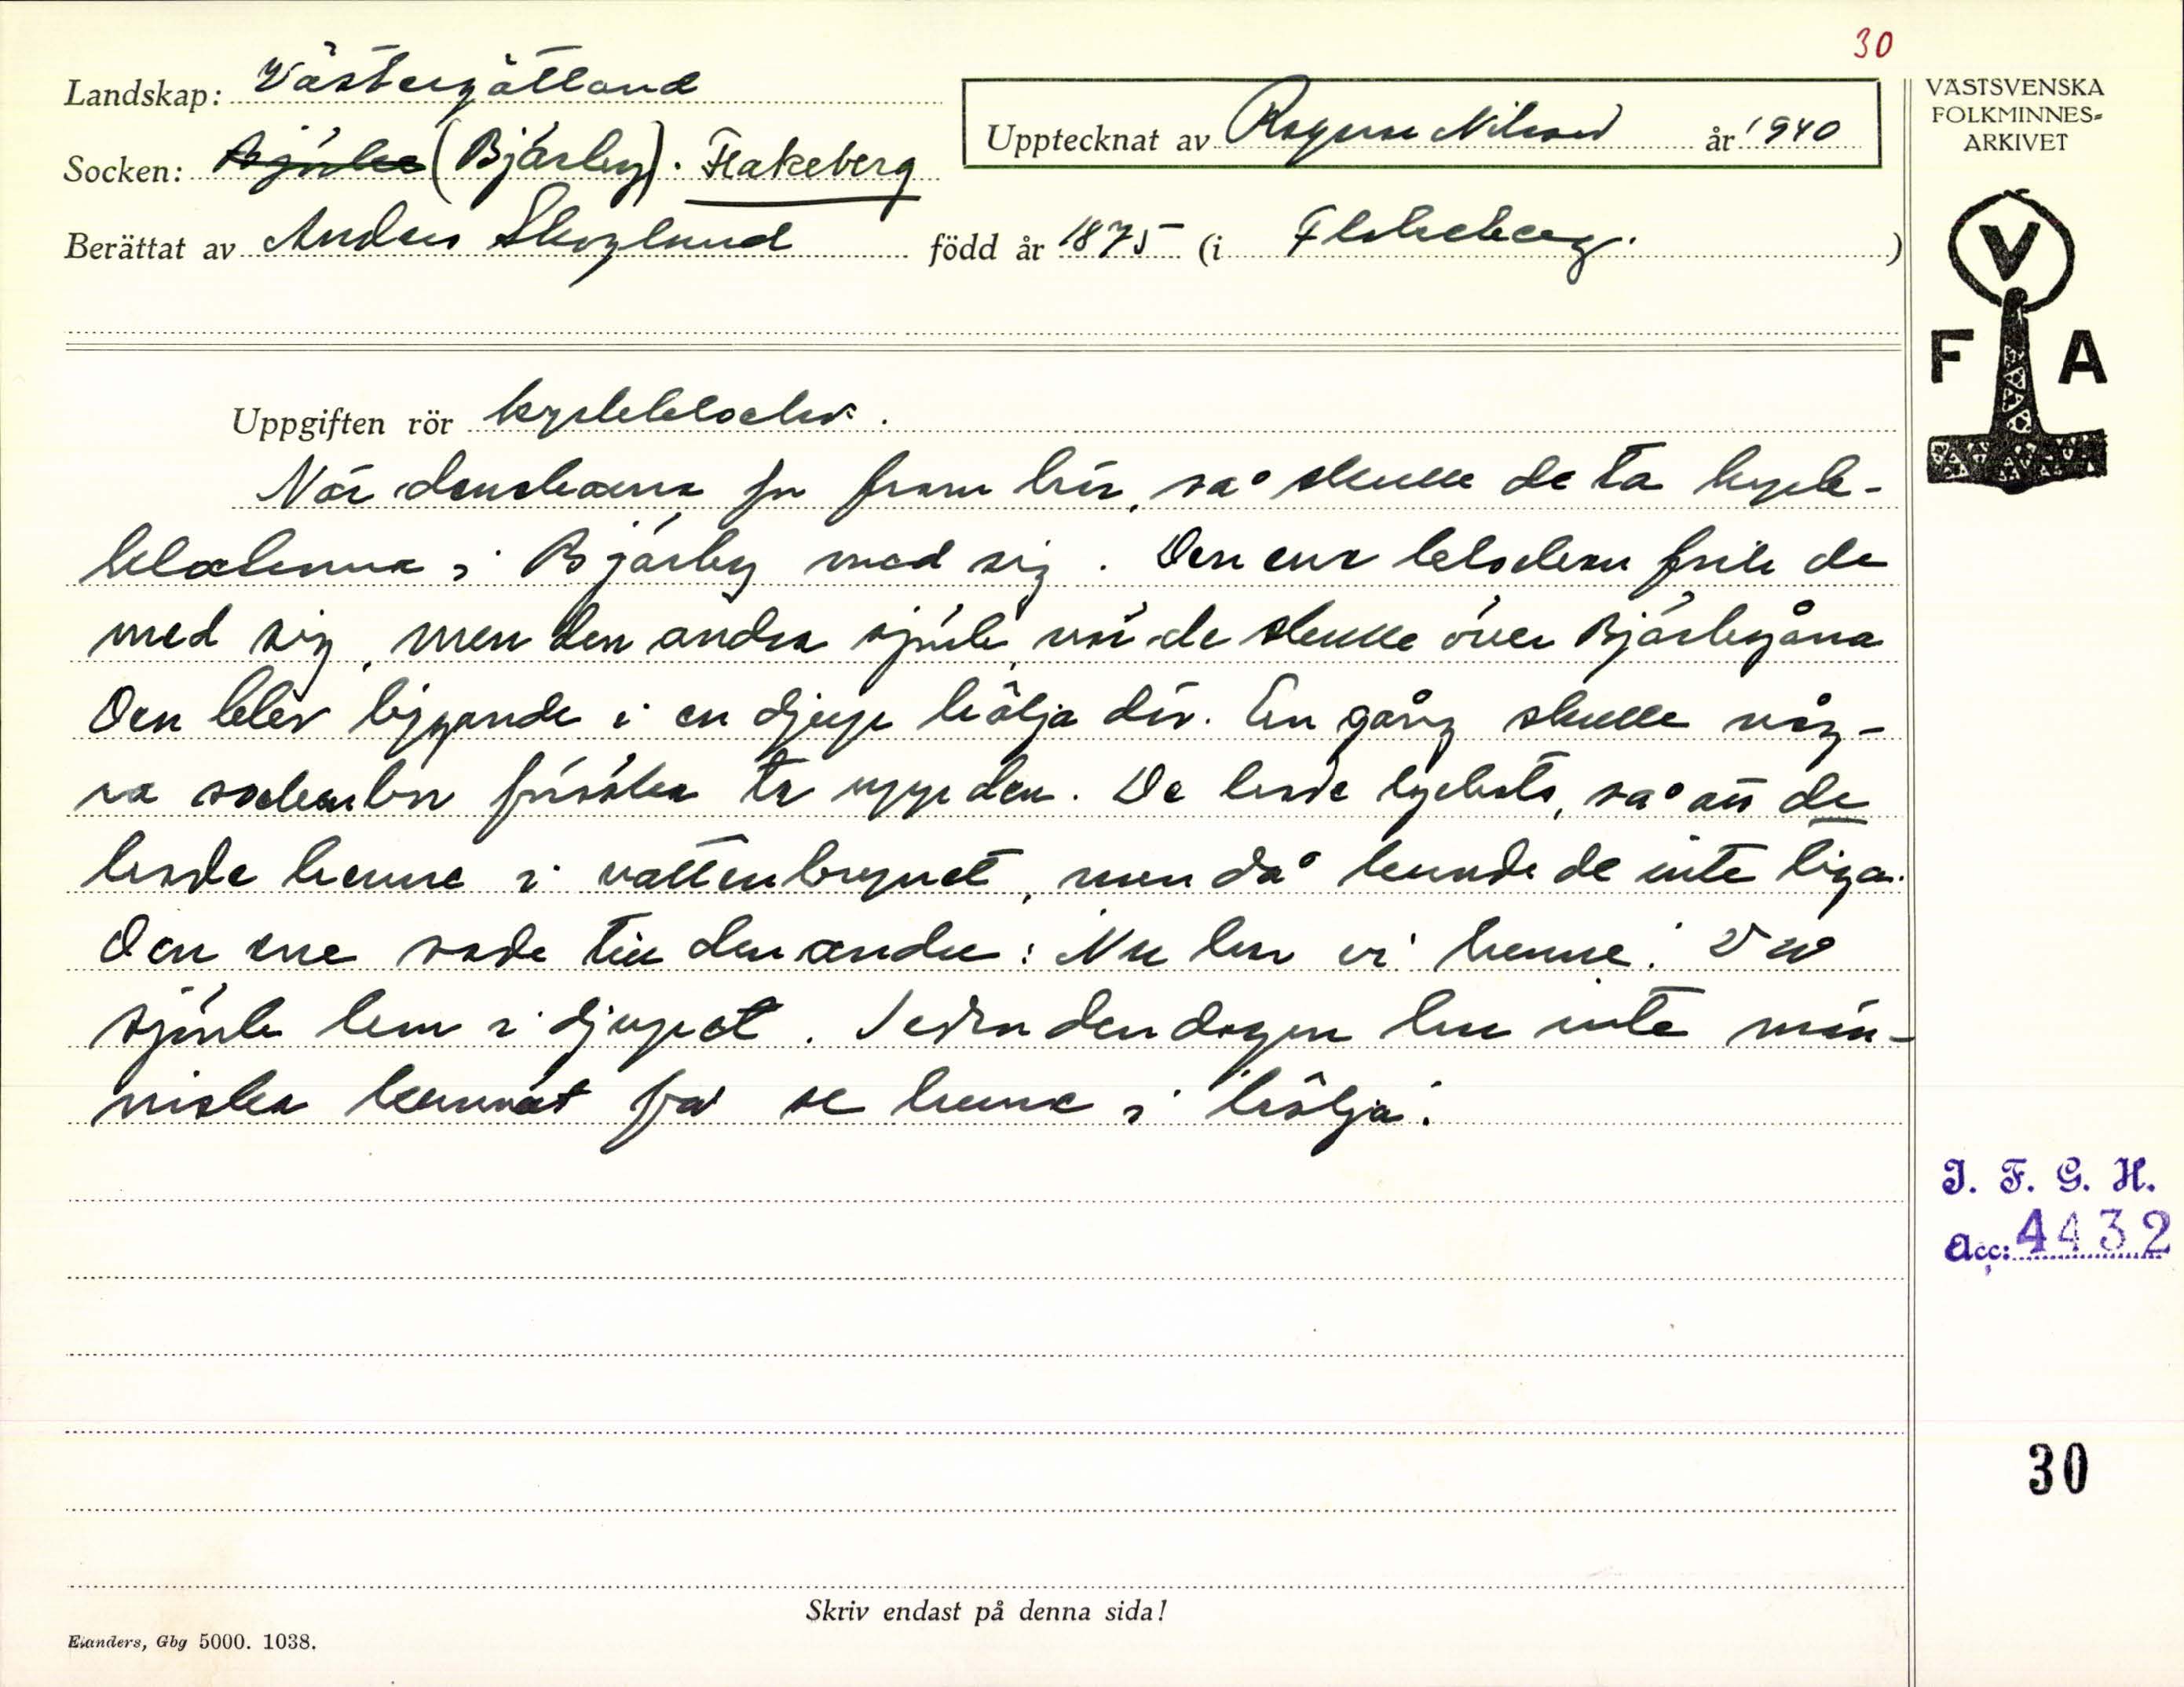 30
Landskap: Västergötland
Upptecknat av Ragnar Nilsson år 1940
Socken: (Bjärby). Flakeberg
Berättat av Anders Skoglund född år 1875 (i Flakeberg.)
VÄSTSVENSKA
FOLKMINNES-
ARKIVET
V
F A
Uppgiften rör kyrkklockor.
När danskarna for fram här, så skulle de ta kyrk-
klockorna i Bjärby med sig. Den ena klockan fick de
med sig, men den andra sjönk, när de skulle över Bjärbyåna
Den blev liggande i en djup hölja där. En gång skulle någ-
ra sockenbor försöka ta upp den. De hade lyckats, så att de
hade henne i vattenbrynet, men då kunde de inte tiga.
Den ene sade till den andre: Nu har vi henne! Då
sjönk hon i djupet. Sedan den dagen har inte män-
niska kunnat få se henne i hölja.
I. F. G. H.
Acc: 4432
30
Skriv endast på denna sida!
Elanders, Gbg 5000. 1038.